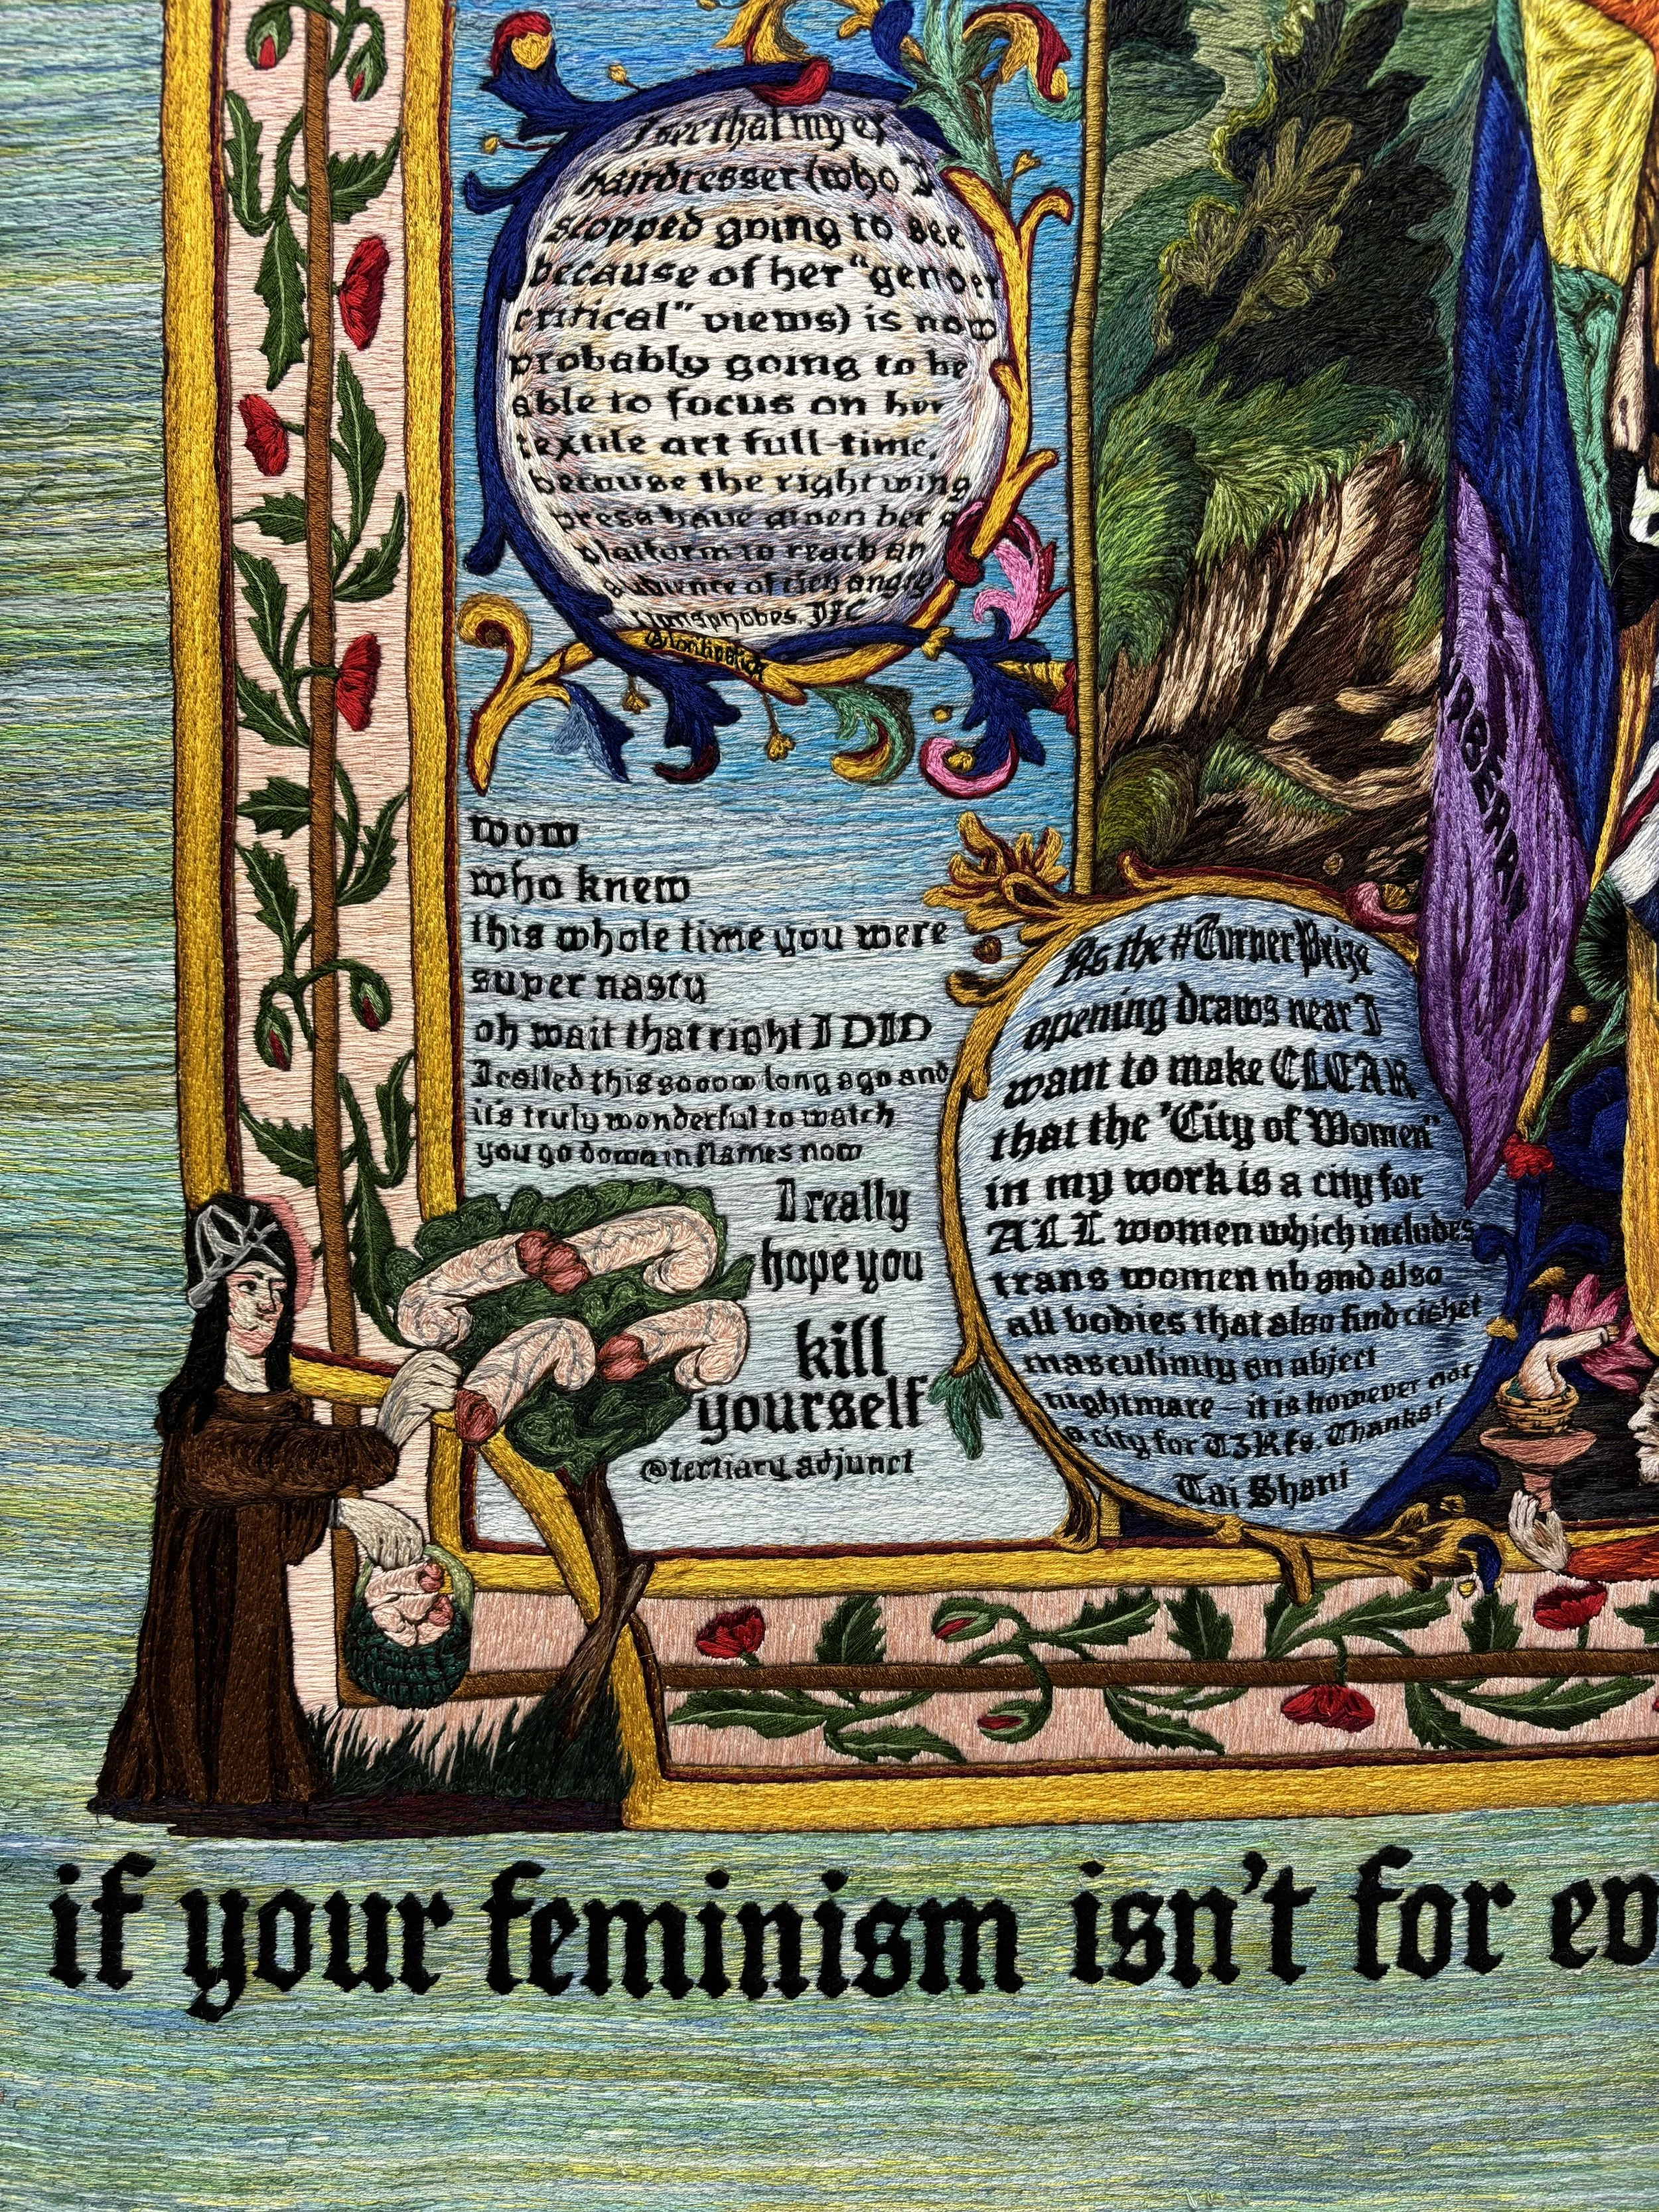 I see that my ex
hairdresser (who I
stopped going to see
because of her "gender
critical" views) is now
probably going to be
able to focus on her
textile art full-time,
because the right wing
press have given her a
platform to reach an
audience of rich angry
transphobes. JFC
wow
who knew
this whole time you were
super nasty
oh wait that right I DID
I called this sooooo long ago and
it's truly wonderful to watch
you go down in flames now
I really
hope you
kill
yourself
@tertiary_adjunct
ABSENAI
As the #Turner Prize
opening draws near I
want to make CLEAR
that the "City of Women"
in my work is a city for
ALL women which includes
trans women nb and also
all bodies that also find cishet
masculinity an abject
nightmare – it is however not
a city for T3RFs. Thanks!
Tai Shani
if your feminism isn't for ev